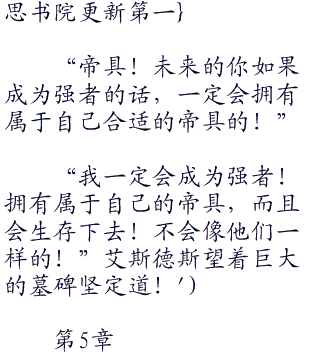 思书院更新第一}
“帝具！未来的你如果
成为强者的话，一定会拥有
属于自己合适的帝具的！”
“我一定会成为强者！
拥有属于自己的帝具，而且
会生存下去！不会像他们一
样的！”艾斯德斯望着巨大
的墓碑坚定道！′)
第5章